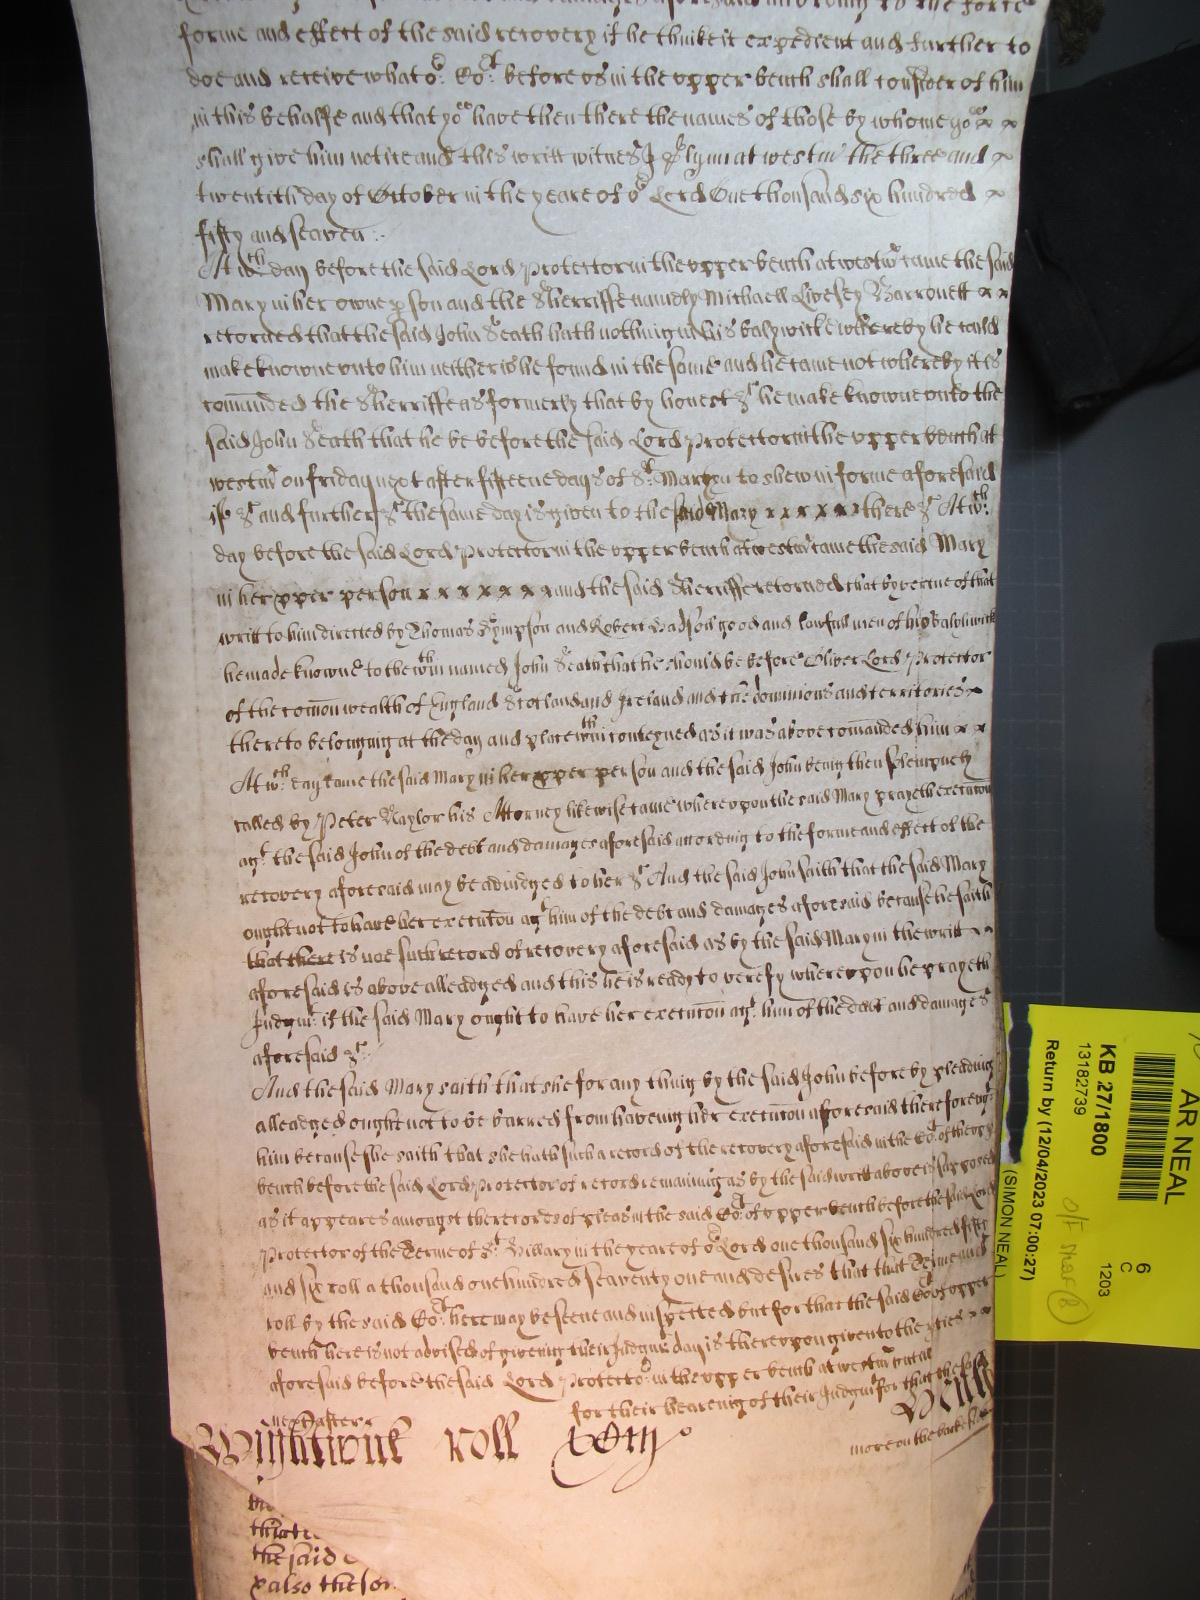 forme and effect of the said recovery if he thinke it expedient and further to
doe and receive what or Cort before us in the upper bench shall consider of him
in this behalfe and that yow have then there the names of those by whome yow x x
shall give him notice and this writt witnes J Glyn at westm the three and x
twentith day of October in the yeare of or Lord One thousand six hundred x
fifty and seaven
At wch day before the said Lord Protector in the upper bench at westmr came the said
Mary in her owne pson and the Sherriffe namely Michaell Livesey Barronett x x
retorned that the said John Heath hath nothing in his baliwicke whereby he could
make knowne unto him neither is he found in the same and he came not whereby it is
comanded the Sherriffe as formerly that by honest &c he make knowne unto the
said John Heath that he be before the said Lord Protector in the upper bench at
westmr on friday next after fifteene days of St Martyn to shew in forme aforesaid
if &c and further &c the same day is given to the said Mary x x x x x x there &c At wch
day before the said Lord Protector in the upper bench at westmr came the said Mary
in her pper person x x x x x x x and the said Sherriffe retorned that by vertue of that
writt to him directed by Thomas Sympson and Robert Hadson good and lawfull men of his baliwick
he made knowne to the wthin named John Heath that he should be before Oliver Lord Protector
of the comon wealth of England Scotland and Ireland and the dominions and territories x
thereto belonging at the day and place wthin conteyned as it was above comanded him x x
At wch day came the said Mary in her pper person and the said John being then solempnely
called by Peter Naylor his Attorney likewise came whereupon the said Mary prayeth execucon
agt the said John of the debt and damages aforesaid according to the forme and effect of the
recovery aforesaid may be adiudged to her &c And the said John saith that the said Mary
ought not to have her execucon agt him of the debt and damages aforesaid because he saith
that there is not such record of recovery aforesaid as by the said Mary in the writt x x
aforesaid is above alleadged and this he is ready to verefy whereupon he prayeth
Judgmt if the said Mary ought to have her execucon agt him of the debt and damages
aforesaid &c
And the said Mary saith that she for any thing by the said John before by pleading
alleadged ought not to be barred from haveing her execucon aforesaid therefore agt
him because she saith that she hath such a record of the recovery aforesaid in the Cort of the upp
bench before the said Lord Protector of record remaining as by the said writt above is supposed
as it appeares amongst the records of pleas in the said Cort of upper bench before the said Lord
Protector of the Terme of St Hillary in the yeare of or Lord one thousand six hundred fifty
and six roll a thousand one hundred seaventy one and desires that that Terme and
roll by the said Cort here may be seene and inspected but for that the said Cort of upper
bench here is not advised of giveing their Judgmt day is thereupon given to the pties x x
aforesaid before the said Lord Protector in the upper bench at westmr untill
next after
for their heareing of their Judgmt for that the said
more on the backe
Wightwick roll
the said
p also the
KB 27/1800
13182739
Return by (12/04/2023 07:00:27)
(SIMON NEAL)
AR NEAL
6
C
1203